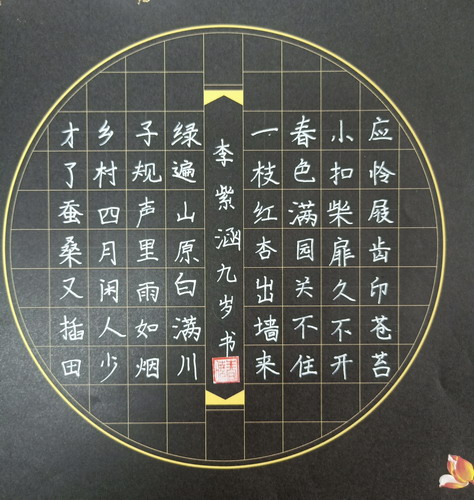 应怜屐齿印苍苔
小扣柴扉久不开
春色满园关不住
一枝红杏出墙来
李紫涵九岁书
绿遍山原白满川
子规声里雨如烟
乡村四月闲人少
才了蚕桑又插田